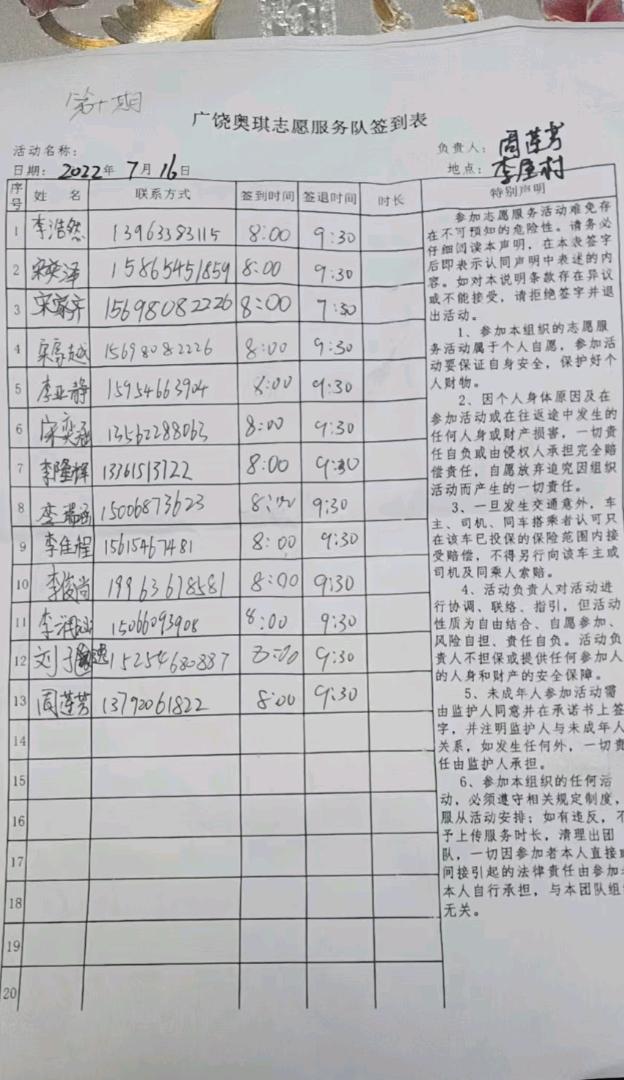 第十期
广饶奥琪志愿服务队签到表
活动名称：
负责人：周莲芳
日期：2022年7月16日
地点：李屋村
序号 姓 名 联系方式 签到时间 签退时间 时长 特别声明
1 李浩然 13963383115 8:00 9:30
2 宋奕泽 15865451859 8:00 9:30
3 宋家齐 15698082226 8:00 7:30
4 宋家越 15698082226 8:00 9:30
5 李亚静 15954663904 8:00 9:30
6 宋奕涵 13562288063 8:00 9:30
7 李隆辉 13361513122 8:00 9:30
8 李瑞涵 15006873623 8:00 9:30
9 李佳程 15615467481 8:00 9:30
10 李俊尚 19963678581 8:00 9:30
11 李润涵 15066093908 8:00 9:30
12 刘子 15254680887 8:00 9:30
13 周莲芳 13792061822 8:00 9:30
14
15
16
17
18
19
20
参加志愿服务活动难免存
在不可预知的危险性。请务必
仔细阅读本声明，在本表签字
后即表示认同声明中表述的内
容。如对本说明条款存在异议
或不能接受，请拒绝签字并退
出活动。
1、参加本组织的志愿服
务活动属于个人自愿，参加活
动要保证自身安全，保护好个
人财物。
2、因个人身体原因及在
参加活动或在往返途中发生的
任何人身或财产损害，一切责
任自负或由侵权人承担完全赔
偿责任，自愿放弃追究因组织
活动而产生的一切责任。
3、一旦发生交通意外，车
主、司机、同车搭乘者认可只
在该车已投保的保险范围内接
受赔偿，不得另行向该车主或
司机及同乘人索赔。
4、活动负责人对活动进
行协调、联络、指引，但活动
性质为自由结合、自愿参加、
风险自担、责任自负。活动负
责人不担保或提供任何参加人
的人身和财产的安全保障。
5、未成年人参加活动需
由监护人同意并在承诺书上签
字，并注明监护人与未成年人
关系，如发生任何外，一切责
任由监护人承担。
6、参加本组织的任何活
动，必须遵守相关规定制度，
服从活动安排；如有违反，不
予上传服务时长，清理出团
队，一切因参加者本人直接或
间接引起的法律责任由参加者
本人自行承担，与本团队组织
无关。